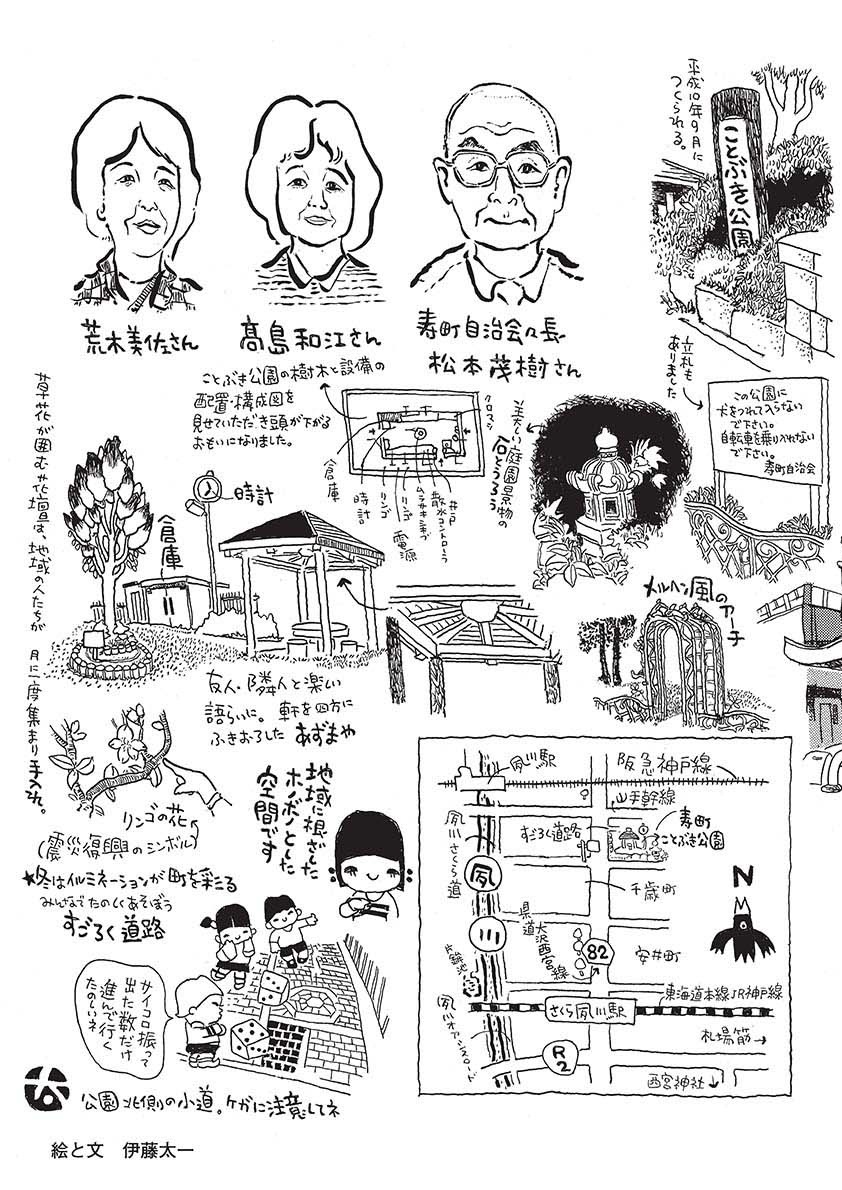 荒木美佐さん
髙島和江さん
寿町自治会々長
松本茂樹さん
平成10年9月に
つくられる。
ことぶき公園
立札も
ありました
この公園に
犬をつれて入らない
で下さい。
自転車を乗り入れない
で下さい。
寿町自治会
ことぶき公園の樹木と設備の
配置・構成図を
見せていただき頭が下がる
おもいになりました。
クロスマツ
倉庫
時計
リンゴ
リンゴ
電源
ムラサキシキブ
散水コントローラ
井戸
美しい庭園景物の
石どうろう
草花が囲む花壇は、地域の人たちが
月に一度集まり手入れ。
時計
倉庫
メルヘン風のアーチ
友人・隣人と楽しい
語らいに。軒を四方に
ふきおろした あずまや
リンゴの花
(震災復興のシンボル)
地域に根ざした
ホノボノとした
空間です
★冬はイルミネーションが町を彩る
みんなでたのしくあそぼう
すごろく道路
サイコロ振って
出た数だけ
進んで行く
たのしいネ
公園北側の小道。ケガに注意してネ
夙川駅
阪急神戸線
山手幹線
夙川さくら道
すごろく道路
寿町
ことぶき公園
夙
川
千歳町
N
県道
大沢西宮線
82
安井町
片鉾池
東海道本線JR神戸線
さくら夙川駅
夙川オアシスロード
札場筋
R2
西宮神社
絵と文　伊藤太一